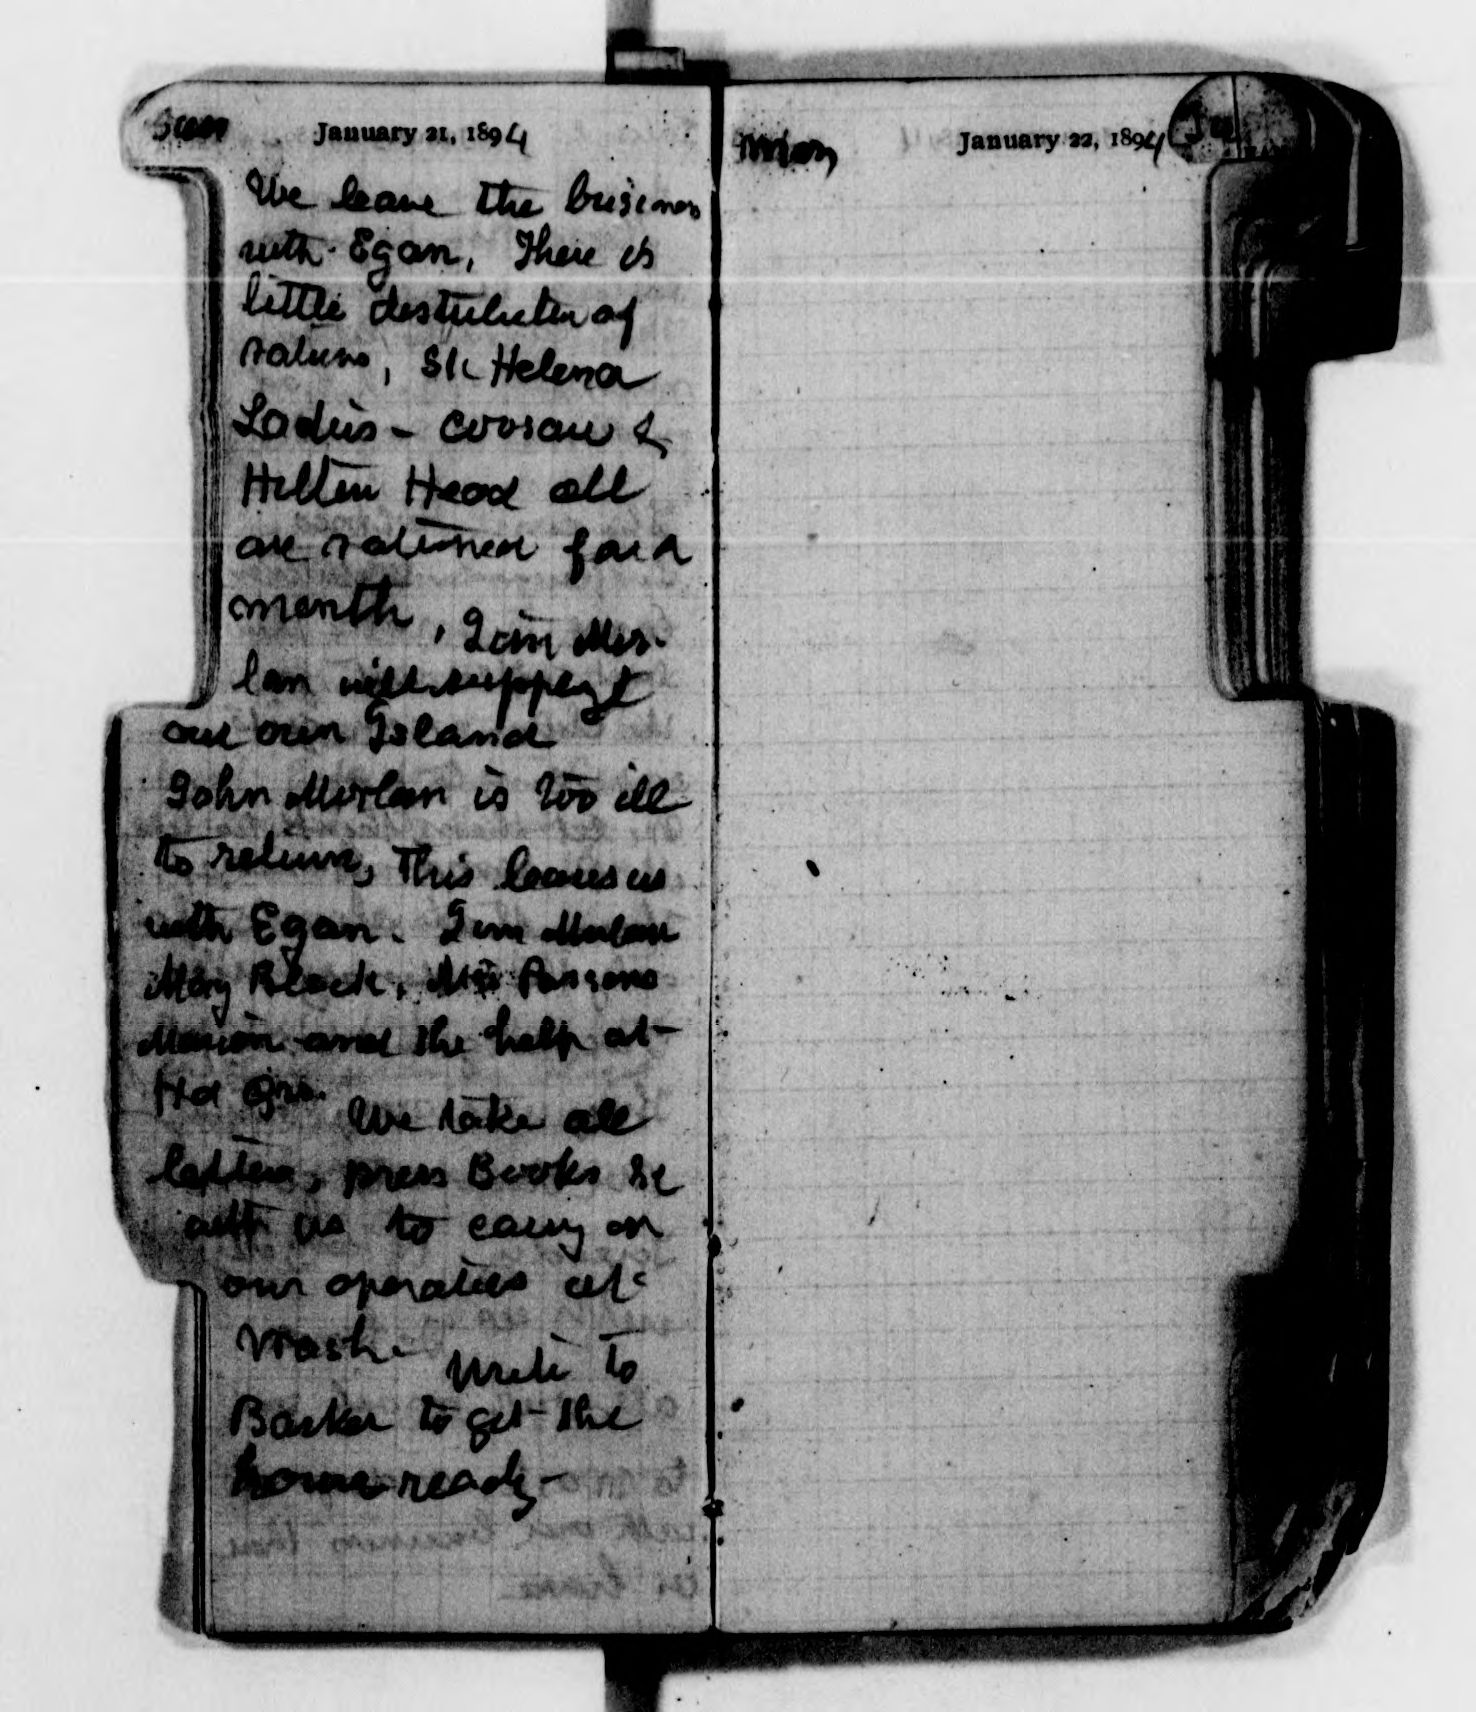 Sun January 21, 1894
We leave the business
with Egan, There is
little distribution of
rations, St Helena
Ladies - Coosaw &
Hilton Head all
are rationed for a
month, Jim Mor-
lan will support
our own Island
John Morlan is too ill
to return, This leaves us
with Egan. Jim Morlan
Mary Black, Parsons
Marion and the help at
Hd Qrs. We take all
letters, press Books &c
with us to carry on
our operations at
Wash. Write to
Barker to get the
house ready -
Mon January 22, 1894